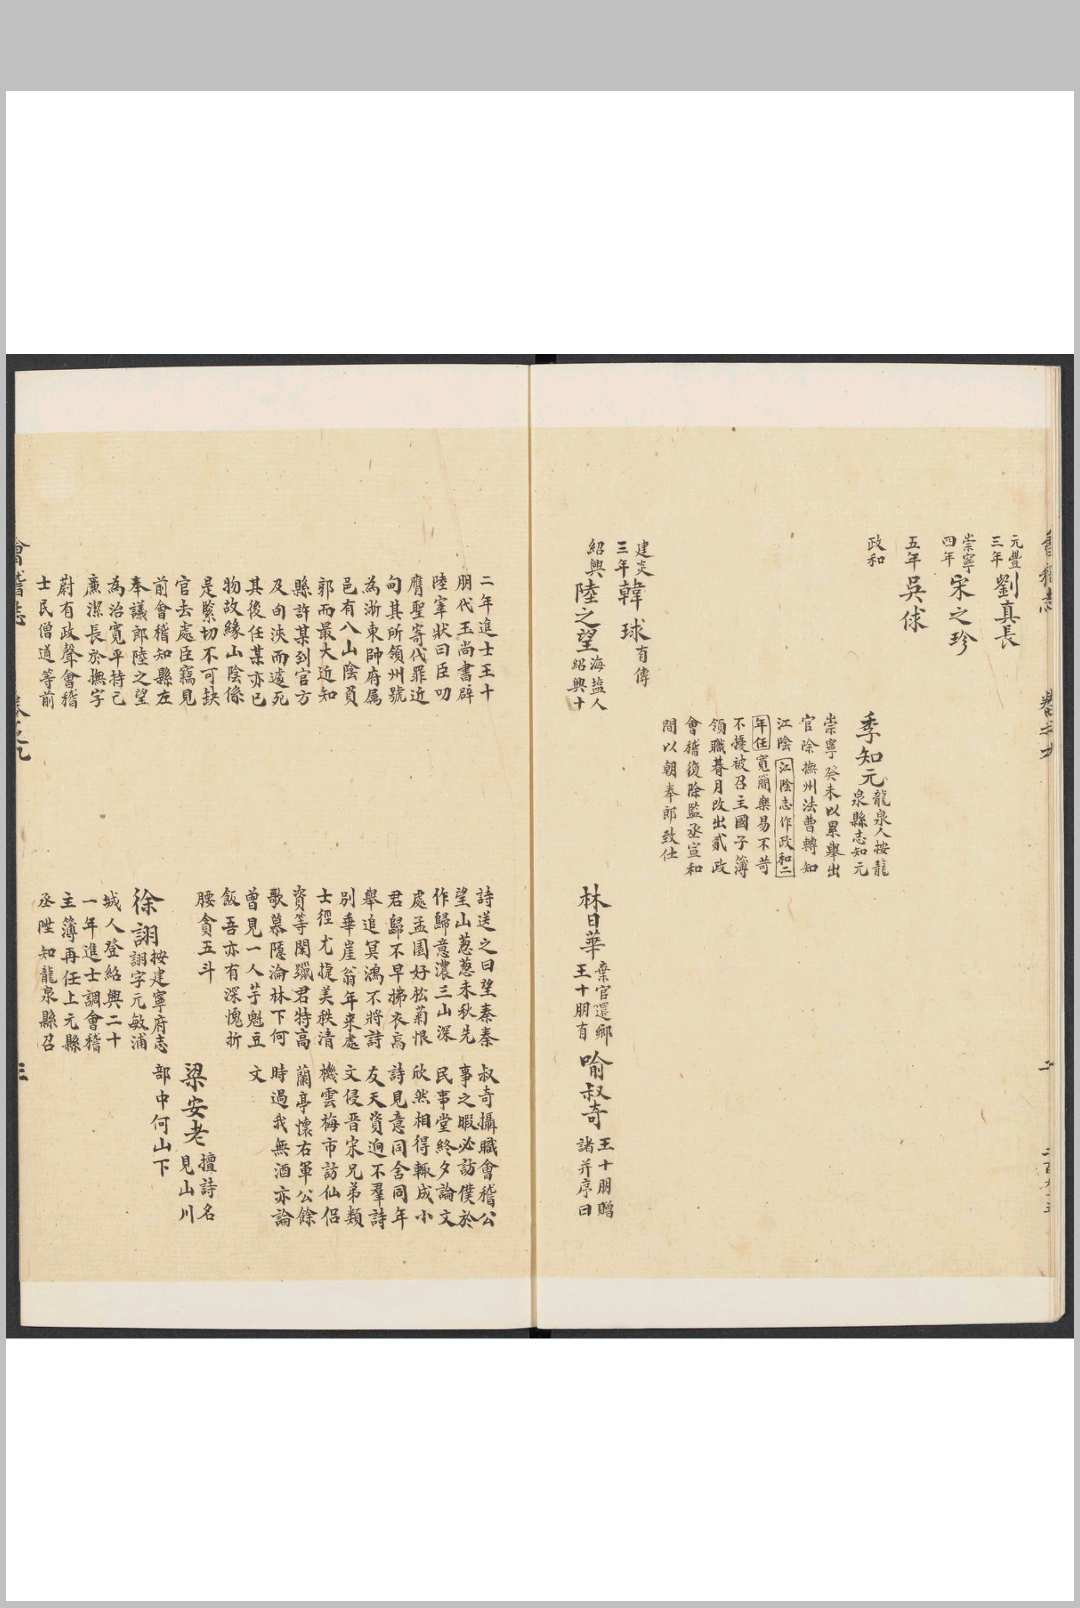 元豐
三年
劉真長
崇寧
四年
宋之珍
五年
吳俅
政和
季知元
龍泉人按龍
泉縣志知元
崇寧癸未以累舉出
官除撫州法曹轉知
江陰江陰志作政和二
年任寬簡樂易不苛
不擾被召主國子簿
領職朞月改出貳政
會稽復除監丞宣和
間以朝奉郎致仕
建炎
三年
韓球
有傳
紹興
陸之望
海鹽人
紹興十
林日華
棄官還鄉
王十朋有
喻叔奇
王十朋贈
諸并序曰
二年進士王十
朋代王尚書辟
陸宰狀曰臣叨
膺聖寄代罪近
甸其所領州號
為浙東帥府屬
邑有八山陰員
郭而最大近知
縣許某到官方
及旬浹而遽死
其後任某亦已
物故緣山陰係
是緊切不可缺
官去處臣竊見
前會稽知縣左
奉議郎陸之望
為治寬平持己
廉潔長於撫字
蔚有政聲會稽
士民僧道等前
詩送之曰望秦秦
望山蔥蔥未秋先
作歸意濃三山深
處孟園好松菊恨
君歸不早拂衣高
舉追冥鴻不將詩
別華崖翁年來處
士徑尤捷美秩清
資等閑躐君特高
歌慕隱淪林下何
曾見一人芋魁豆
飯吾亦有深愧折
腰貪五斗
叔奇攝職會稽公
事之暇必訪僕於
民事堂終夕論文
欣然相得輒成小
詩見意同舍同年
友天資迥不羣詩
文侵晉宋兄弟類
機雲梅市訪仙侶
蘭亭懷右軍公餘
時過我無酒亦論
文
徐詡
按建寧府志
詡字元敏浦
城人登紹興二十
一年進士調會稽
主簿再任上元縣
丞陞知龍泉縣召
梁安老
擅詩名
見山川
部中何山下
會稽志
三